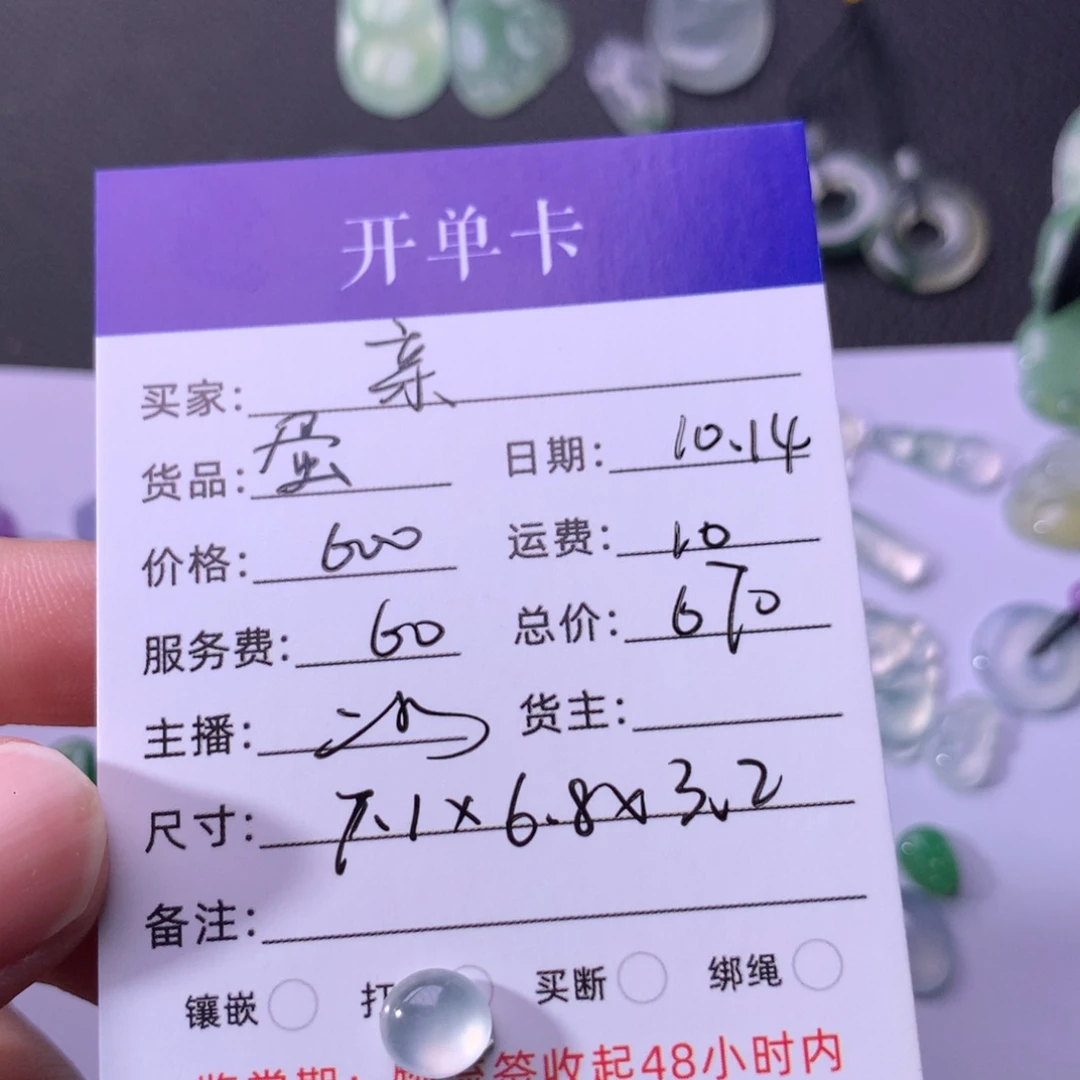 开单卡
买家: 亲
货品: 蛋 日期: 10.14
价格: 600 运费: 10
服务费: 60 总价: 670
主播: 冯 货主:
尺寸: 7.1×6.8×3.2
备注:
镶嵌 打 买断 绑绳
签收起48小时内